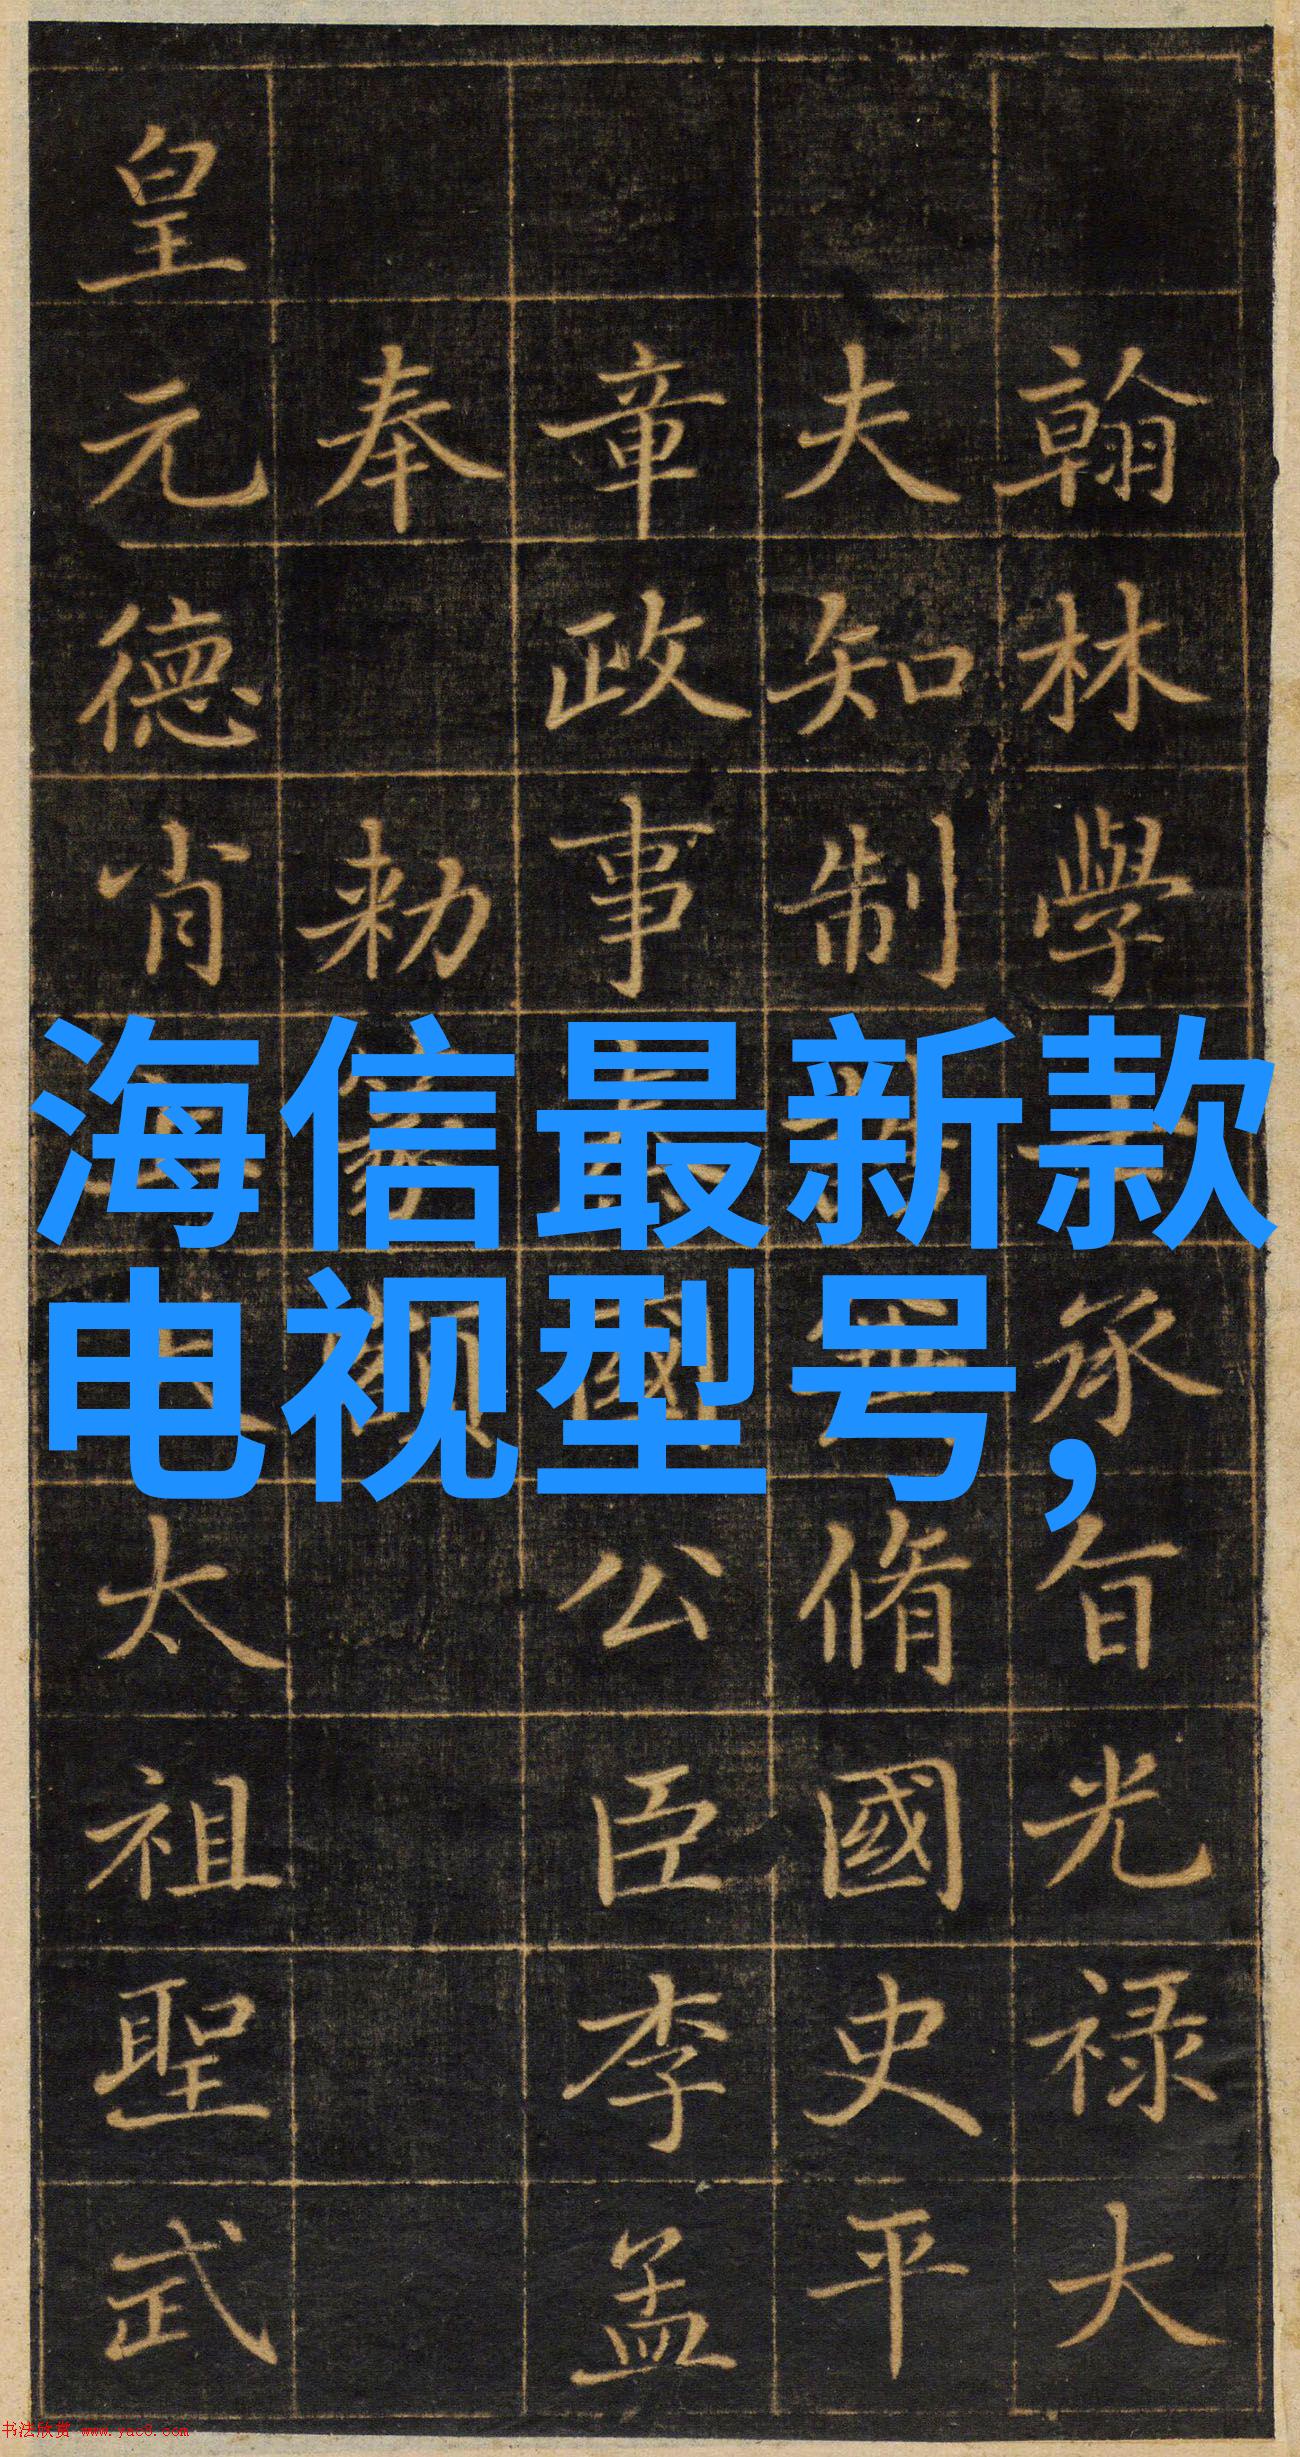 海信最新款
电视型号,
翰林學承旨光禄大
夫知制脩國史平
章政事國公臣李孟
奉勅
皇元德肖太祖聖武
书法欣赏 www.yac8.com